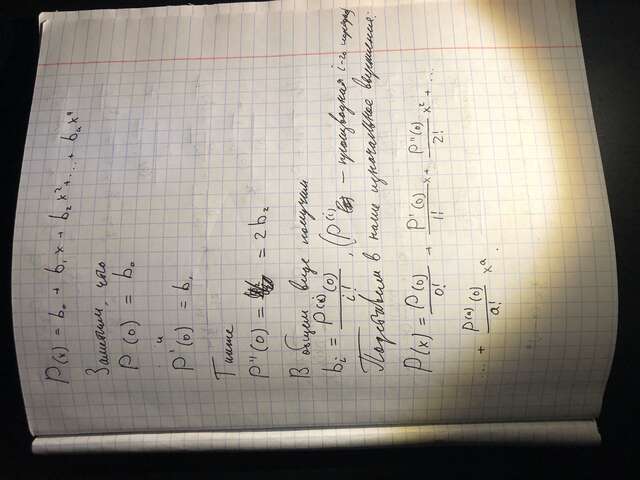 P(x) = b₀ + b₁x + b₂x² + ... + bₐxᵃ
Заметим, что
P(0) = b₀
и
P'(0) = b₁
Также
P''(0) = 2b₂
В общем виде получим
bᵢ = P⁽ⁱ⁾(0)/i!, (P⁽ⁱ⁾ – производная i-го порядка
Подставим в наше изначальное выражение:
P(x) = P(0)/0! + P'(0)/1! x + P''(0)/2! x² + ...
... + P⁽ᵃ⁾(0)/a! xᵃ